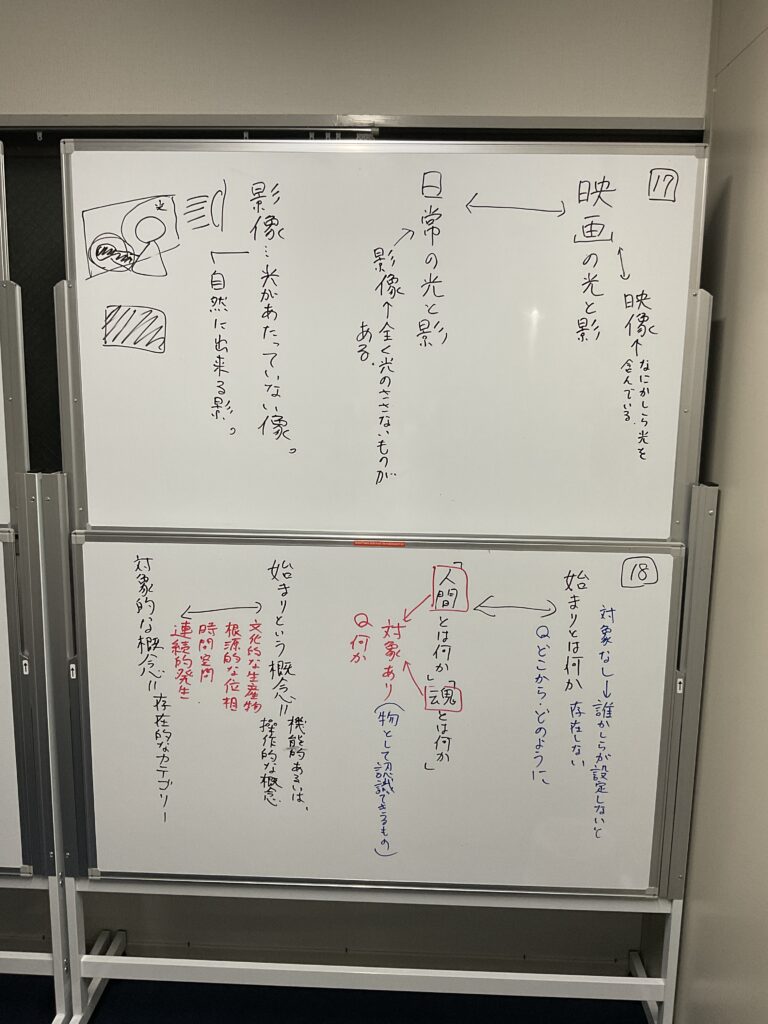 17
映画の光と影
映像↑なにかしら光を
含んでいる.
日常の光と影
影像↑全く光のささないものが
ある.
影像…光があたっていない像。
自然に出来る影。
光
18
対象なし→誰かしらが設定しないと
存在しない
始まりとは何か
Qどこから・どのように
「人間とは何か」「魂とは何か」
対象あり(物として認識できるもの)
Q何か
始まりという概念=機能的あるいは、
操作的な概念
文化的な生産物
根源的な位相
時間空間
連続的発生
対象的な概念=存在的なカテゴリー